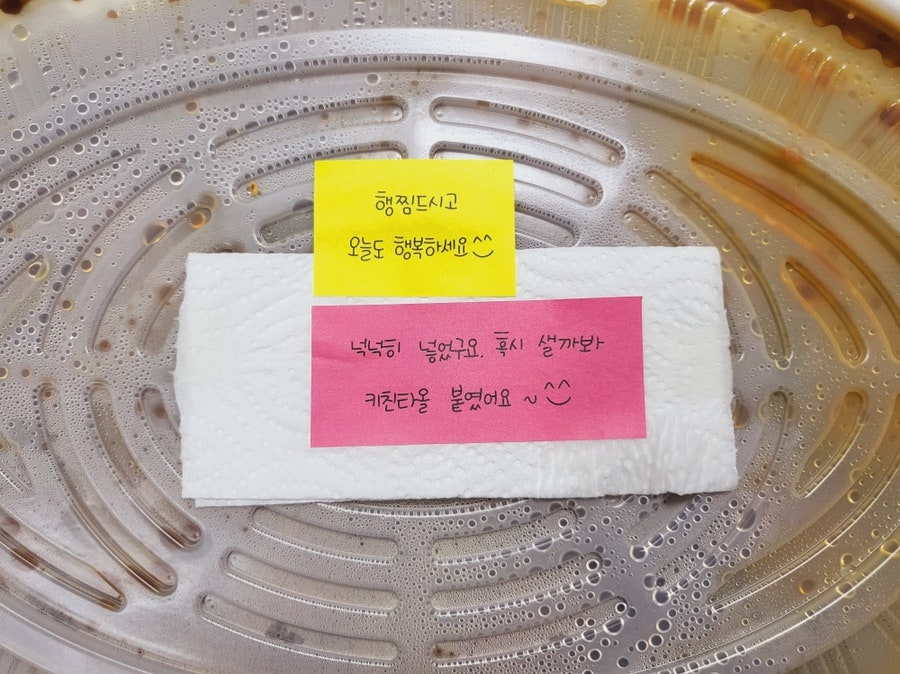 행찜드시고
오늘도 행복하세요^^
넉넉히 넣었구요. 혹시 샐까봐
키친타올 붙였어요 ~^^